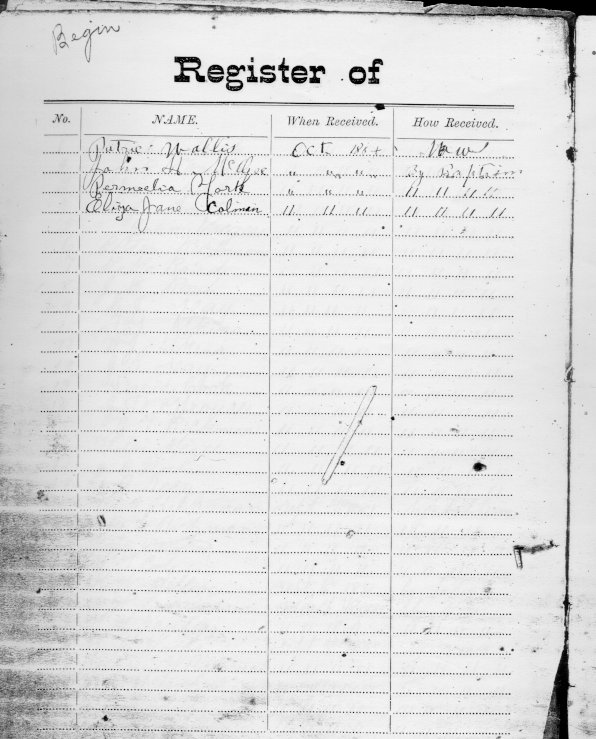 Begin
Register of
No. NAME. When Received. How Received.
Wallis Oct New
John H. By Baptism
Permeelia York " " " " " " "
Eliza Jane Colman " " " " " " "